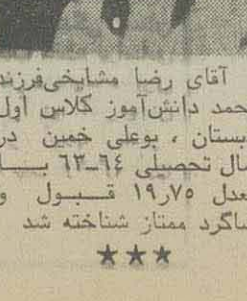 آقای رضا مشایخی فرزند
حمد دانش‌آموز کلاس اول
بستان ، بوعلی خمین در
سال تحصیلی ۶۴ـ۶۳ بـــا
عدل ۱۹٫۷۵ قـــبـــول و
شاگرد ممتاز شناخته شد
★★★